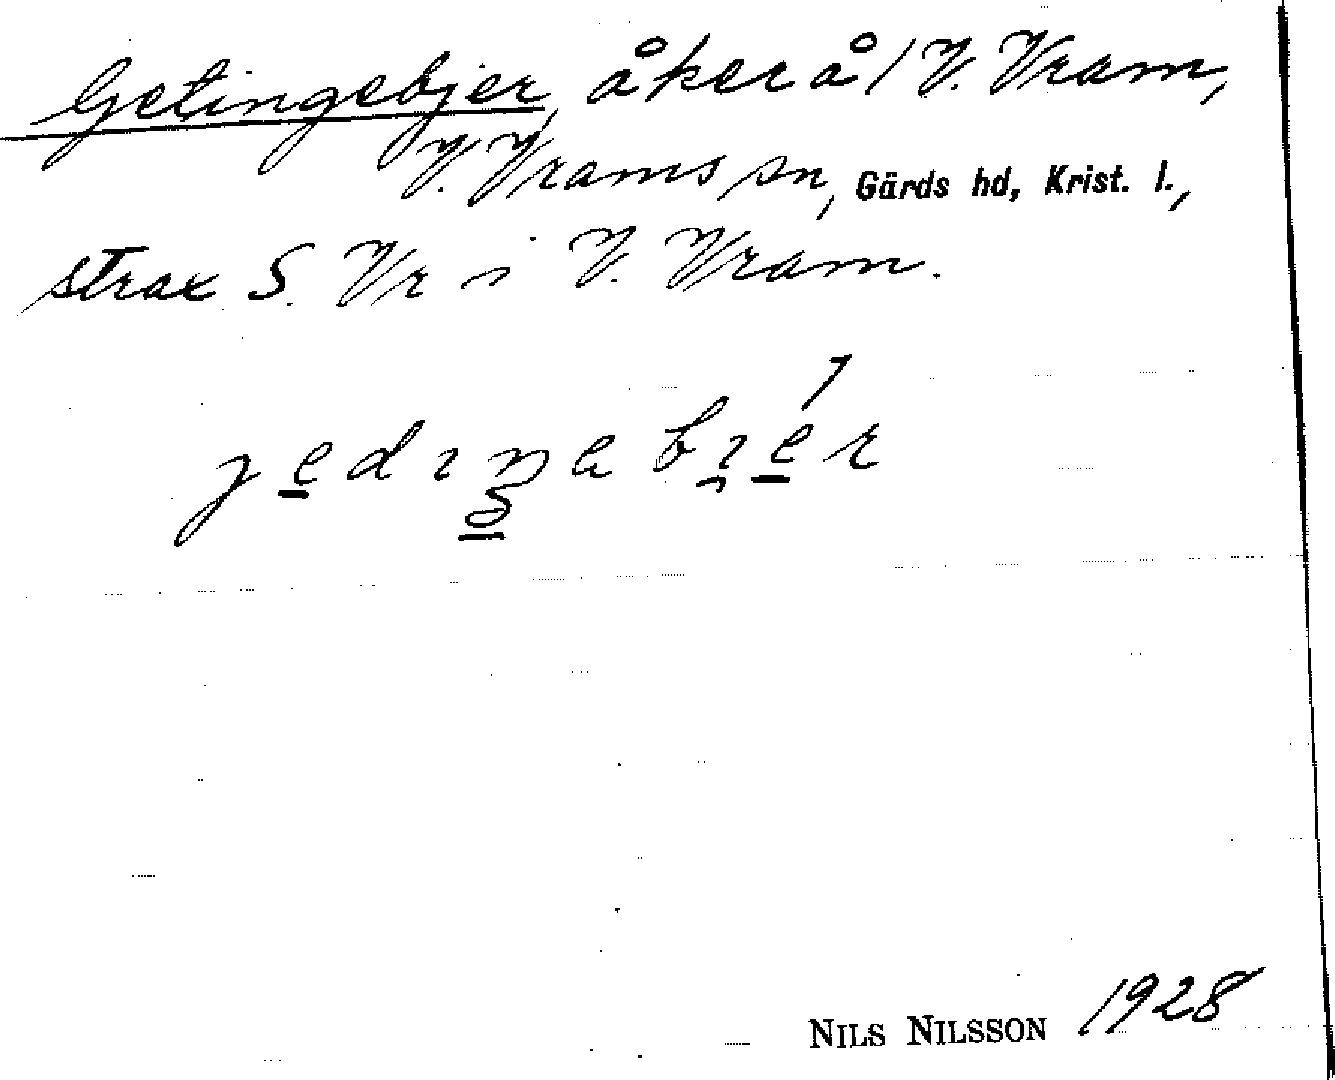 Getingebjer, åker å 1 V. Vram,
V. Vrams sn, Gärds hd, Krist. l.,
strax S. Vr i V. Vram.
NILS NILSSON 1928